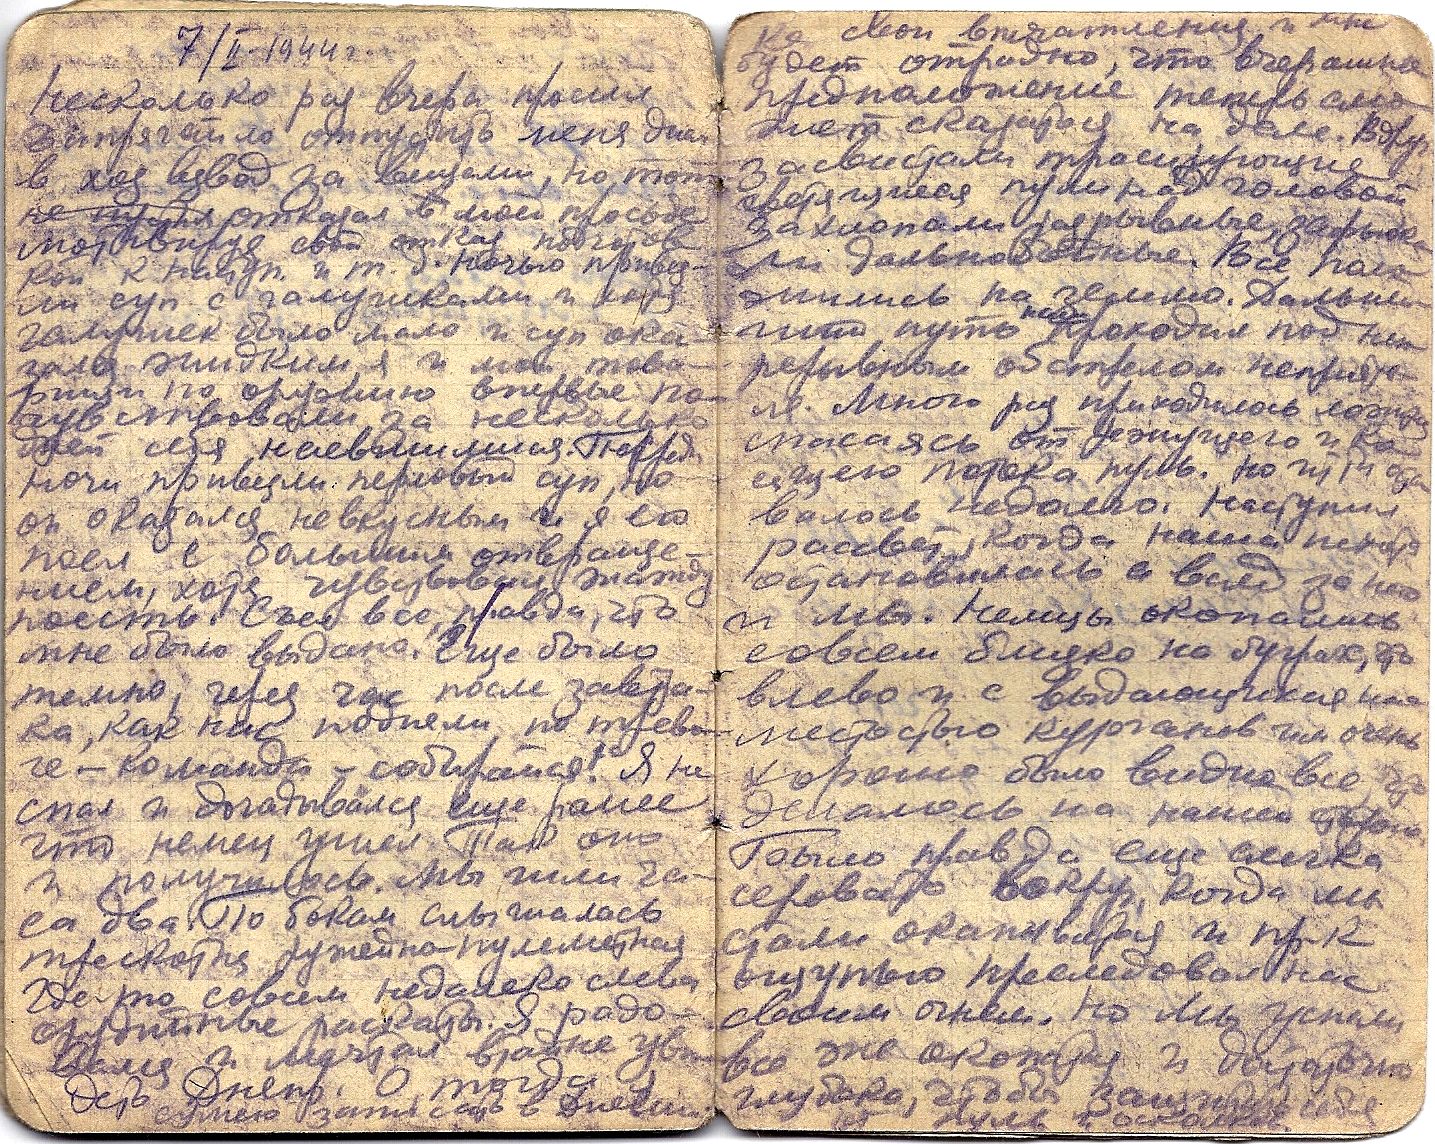 7/II 1944 г.
Несколько раз вчера просил
отпустить меня днем
в хоз взвод за вещами, но тот
не пустил отказал в моей просьбе
мотивируя свой отказ подготов
кой к наступ. и т. д. Ночью привез-
ли суп с галушками и хотя
галушек было мало и суп ока-
зался жидким, я и мои това-
рищи по оружию впервые по-
чувствовали за несколько
дней себя наевшимися. Посреди
ночи привезли перловый суп, но
он оказался невкусным и я его
поел с большим отвраще-
нием, хотя чувствовал жажду
поесть. Съел все, правда, что
мне было выдано. Еще было
темно, через час после завтра-
ка, как нас подняли по трево-
ге – команда – собирайся! Я не
спал и догадывался еще ранее
что немец ушел. Так оно
и получилось. Мы шли ча-
са два. По бокам слышалась
трескотня ружейно-пулеметная
где-то совсем недалеко слева
орудийные раскаты. Я радо-
вался и мечтал вслух уви-
деть Днепр. О тогда я
сумею записать в дневни
ке свои впечатления и мне
будет отрадно, что вчерашнее
предположение теперь смо
жет сказаться на деле. Вдруг
засвистали трассирующие
светящиеся пули над головой
захлопали разрывные, зарыча
ли дальнобойные. Все поло
жились на землю. Дальней
ший путь наш проходил под неп
рерывным обстрелом неприяте-
ля. Много раз приходилось ложиться
спасаясь от жгущего и ко
сящего потока пуль. Но идти оста
валось недолго. Наступил
рассвет, когда наша пехота
остановилась а вслед за нею
и мы. Немцы окопались
совсем близко на буграх, что
влево и с выдающихся на
местностью курганов им очень
хорошо было видно все, что
делалось на нашей стороне
Было правда еще слегка
серовато вокруг, когда мы
стали окапываться и пр-к
ощупью преследовал нас
своим огнем. Но мы успели
все же окопаться и достаточно
глубоко, чтобы защищаться
от пуль и осколков.